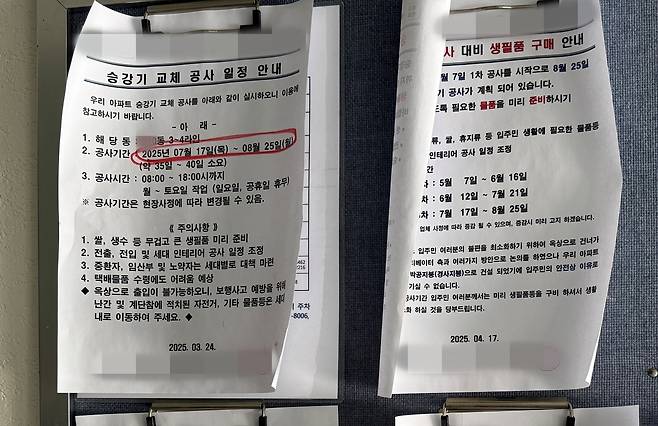 승강기 교체 공사 일정 안내
우리 아파트 승강기 교체 공사를 아래와 같이 실시하오니 이용에
참고하시기 바랍니다.
- 아 래 -
1. 해 당 동 : 동 3~4라인
2. 공사기간 : 2025년 07월 17일(목) ~ 08월 25일(월)
(약 35일 ~ 40일 소요)
3. 공사시간 : 08:00 ~ 18:00시까지
월 ~ 토요일 작업 (일요일, 공휴일 휴무)
※ 공사기간은 현장사정에 따라 변경될 수 있음.
《 주의사항 》
1. 쌀, 생수 등 무겁고 큰 생필품 미리 준비
2. 전출, 전입 및 세대 인테리어 공사 일정 조정
3. 중환자, 임산부 및 노약자는 세대별로 대책 마련
4. 택배물품 수령에도 어려움 예상
◆ 옥상으로 출입이 불가능하오니, 보행사고 예방을 위해
난간 및 계단참에 적치된 자전거, 기타 물품등은 세대
내로 이동하여 주세요. ◆
2025. 03. 24.
주차
-8006,
사 대비 생필품 구매 안내
월 7일 1차 공사를 시작으로 8월 25일
기 공사가 계획 되어 있습니다.
도록 필요한 물품을 미리 준비하시기
류, 쌀, 휴지류 등 입주민 생활에 필요한 물품
인테리어 공사 일정 조정
차 : 5월 7일 ~ 6월 16일
차 : 6월 12일 ~ 7월 21일
차 : 7월 17일 ~ 8월 25일
업체 사정에 따라 증감 될 수 있으며, 증감시 미리 고지 하겠습니다.
입주민 여러분의 불편을 최소화하기 위하여 옥상으로 건너가
리베이터 측과 여러가지 방안으로 논의를 하였으나 우리 아파트
박공지붕(경사지붕)으로 건설 되어있기에 입주민의 안전상 이유로
기실 수 없습니다.
공사기간 입주민 여러분께서는 미리 생필품등을 구비 하셔서 생활
화 하실 것을 당부드립니다.
2025. 04. 17.